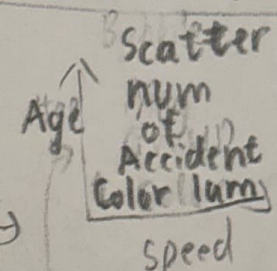 Scatter
num
Age
of
Accident
Color lum
speed